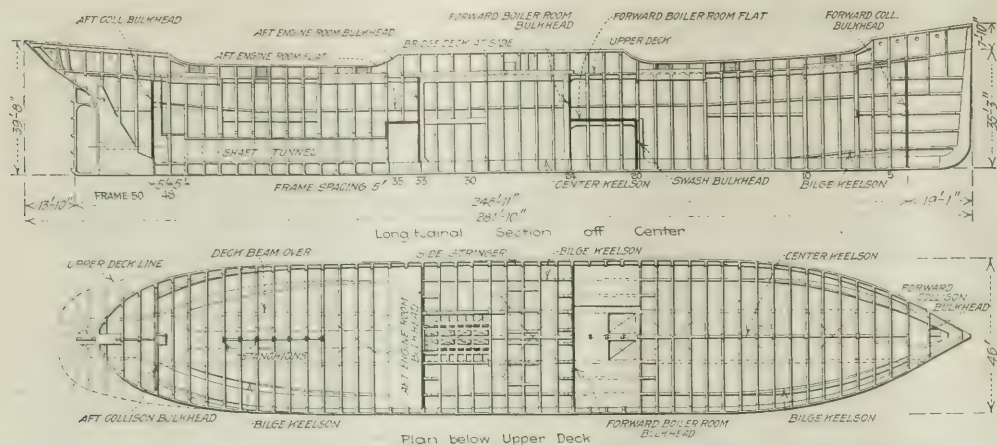 AFT COLL BULKHEAD
AFT ENGINE ROOM BULKHEAD
AFT ENGINE ROOM FLAT
FORWARD BOILER ROOM
BULKHEAD
BRIDGE DECK AT SIDE
FORWARD BOILER ROOM FLAT
UPPER DECK
FORWARD COLL.
BULKHEAD
39'-8"
7'-10"
35'-3"
SHAFT TUNNEL
FRAME 50
48
FRAME SPACING 5'
35
33
30
24
CENTER KEELSON
20
SWASH BULKHEAD
10
BILGE KEELSON
5
13'-10"
248'-11"
19'-1"
281'-10"
Longitudinal Section off Center
UPPER DECK LINE
DECK BEAM OVER
SIDE STRINGER
BILGE KEELSON
CENTER KEELSON
FORWARD
COLLISON
BULKHEAD
AFT ENGINE ROOM
BULKHEAD
STANCHIONS
46'
AFT COLLISON BULKHEAD
BILGE KEELSON
FORWARD BOILER ROOM
BULKHEAD
BILGE KEELSON
Plan below Upper Deck